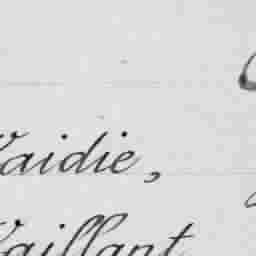 Vaidie,
Vaillant